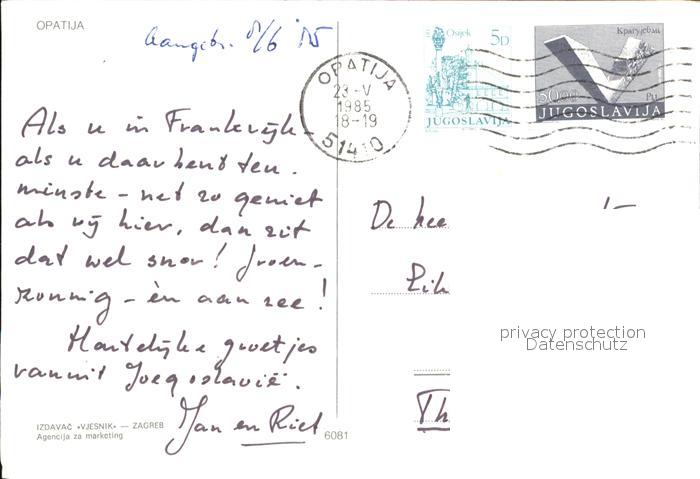 OPATIJA
Aangek. 8/6 '85
OPATIJA
23-V
1985
18-19
51410
Osijek 5D
JUGOSLAVIJA
Крагујевац
JUGOSLAVIJA
Als u in Frankrijk -
als u daar bent ten.
minste - net zo geniet
als wij hier, dan zit
dat wel snor! Groen-
zonnig - èn aan zee!
Hartelijke groetjes
vanuit Joegoslavië.
Jan en Riet
De hee
Th
privacy protection
Datenschutz
IZDAVAČ «VJESNIK» — ZAGREB
Agencija za marketing
6081